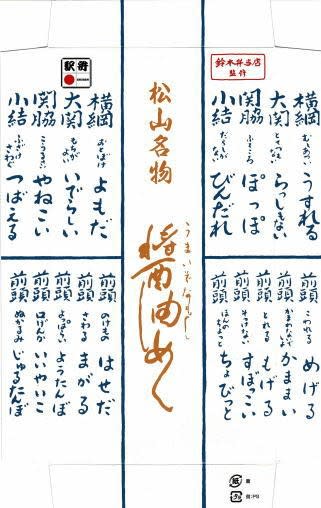 駅弁
鈴木弁当店
監修
松山名物
うまいぞなもし
醤油めし
横綱
むしあつい
うずれる
大関
とてつもない
らっしもない
関脇
ふところ
ぽっぽ
小結
だらしがない
びんだれ
横綱
おとぼけ
よもだ
大関
もちがよい
いでらしい
関脇
こうるさい
やねこい
小結
ふざけさわぐ
つばえる
前頭
こわれる
めげる
前頭
かまわないで
かままい
前頭
とれる
もげる
前頭
そっけない
すぼっこい
前頭
ほんのちょっと
ちょびっと
前頭
のけもの
はせだ
前頭
さわる
まがる
前頭
よっぱらい
ようたんぼ
前頭
口げんか
いいやいこ
前頭
ぬかるみ
じゅるたんぼ
紙
蓋
プラ
身:PS